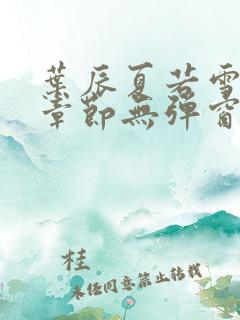 葉辰夏若雪
章節無彈窗
桂
未經同意禁止轉載